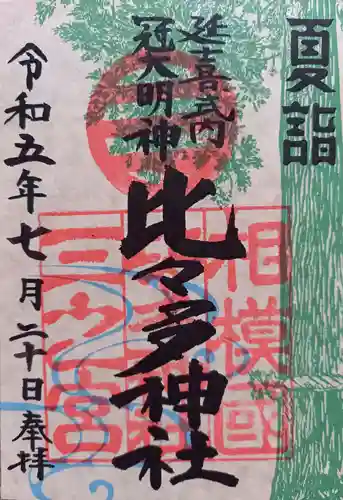 夏詣
延喜式内
冠大明神
比々多神社
相模國
三之宮
令和五年七月二十日奉拝